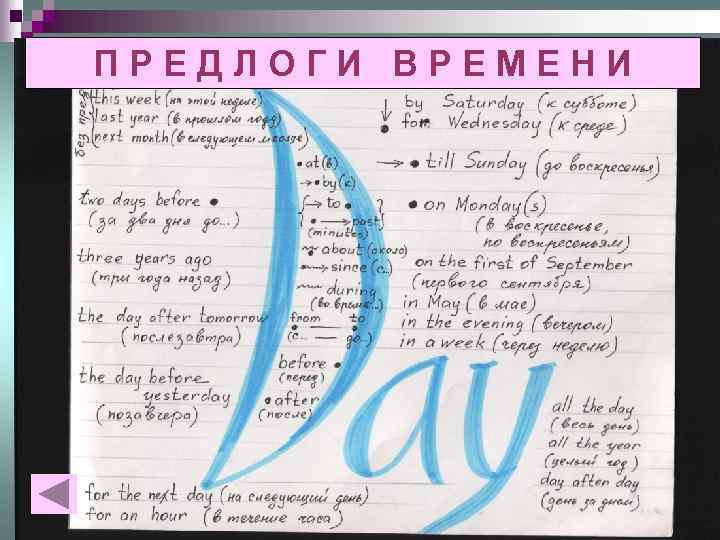 ПРЕДЛОГИ ВРЕМЕНИ
без пред
this week (на этой неделе)
last year (в прошлом году)
next month (в следующем месяце)
two days before •
(за два дня до...)
three years ago
(три года назад)
the day after tomorrow
(послезавтра)
the day before
yesterday
(позавчера)
for the next day (на следующий день)
for an hour (в течение часа)
• at (в)
→• by (к)
{→ to • }
{ •→ past}
(minutes)
about (около)
•→ since (с..)
during
(во время...)
from to
(с... до...)
before •
(перед)
• after
(после)
Day
by Saturday (к субботе)
for Wednesday (к среде)
→ • till Sunday (до воскресенья)
• on Monday(s)
(в воскресенье,
по воскресеньям)
on the first of September
(первого сентября)
in May (в мае)
in the evening (вечером)
in a week (через неделю)
all the day
(весь день)
all the year
(целый год)
day after day
(день за днем)